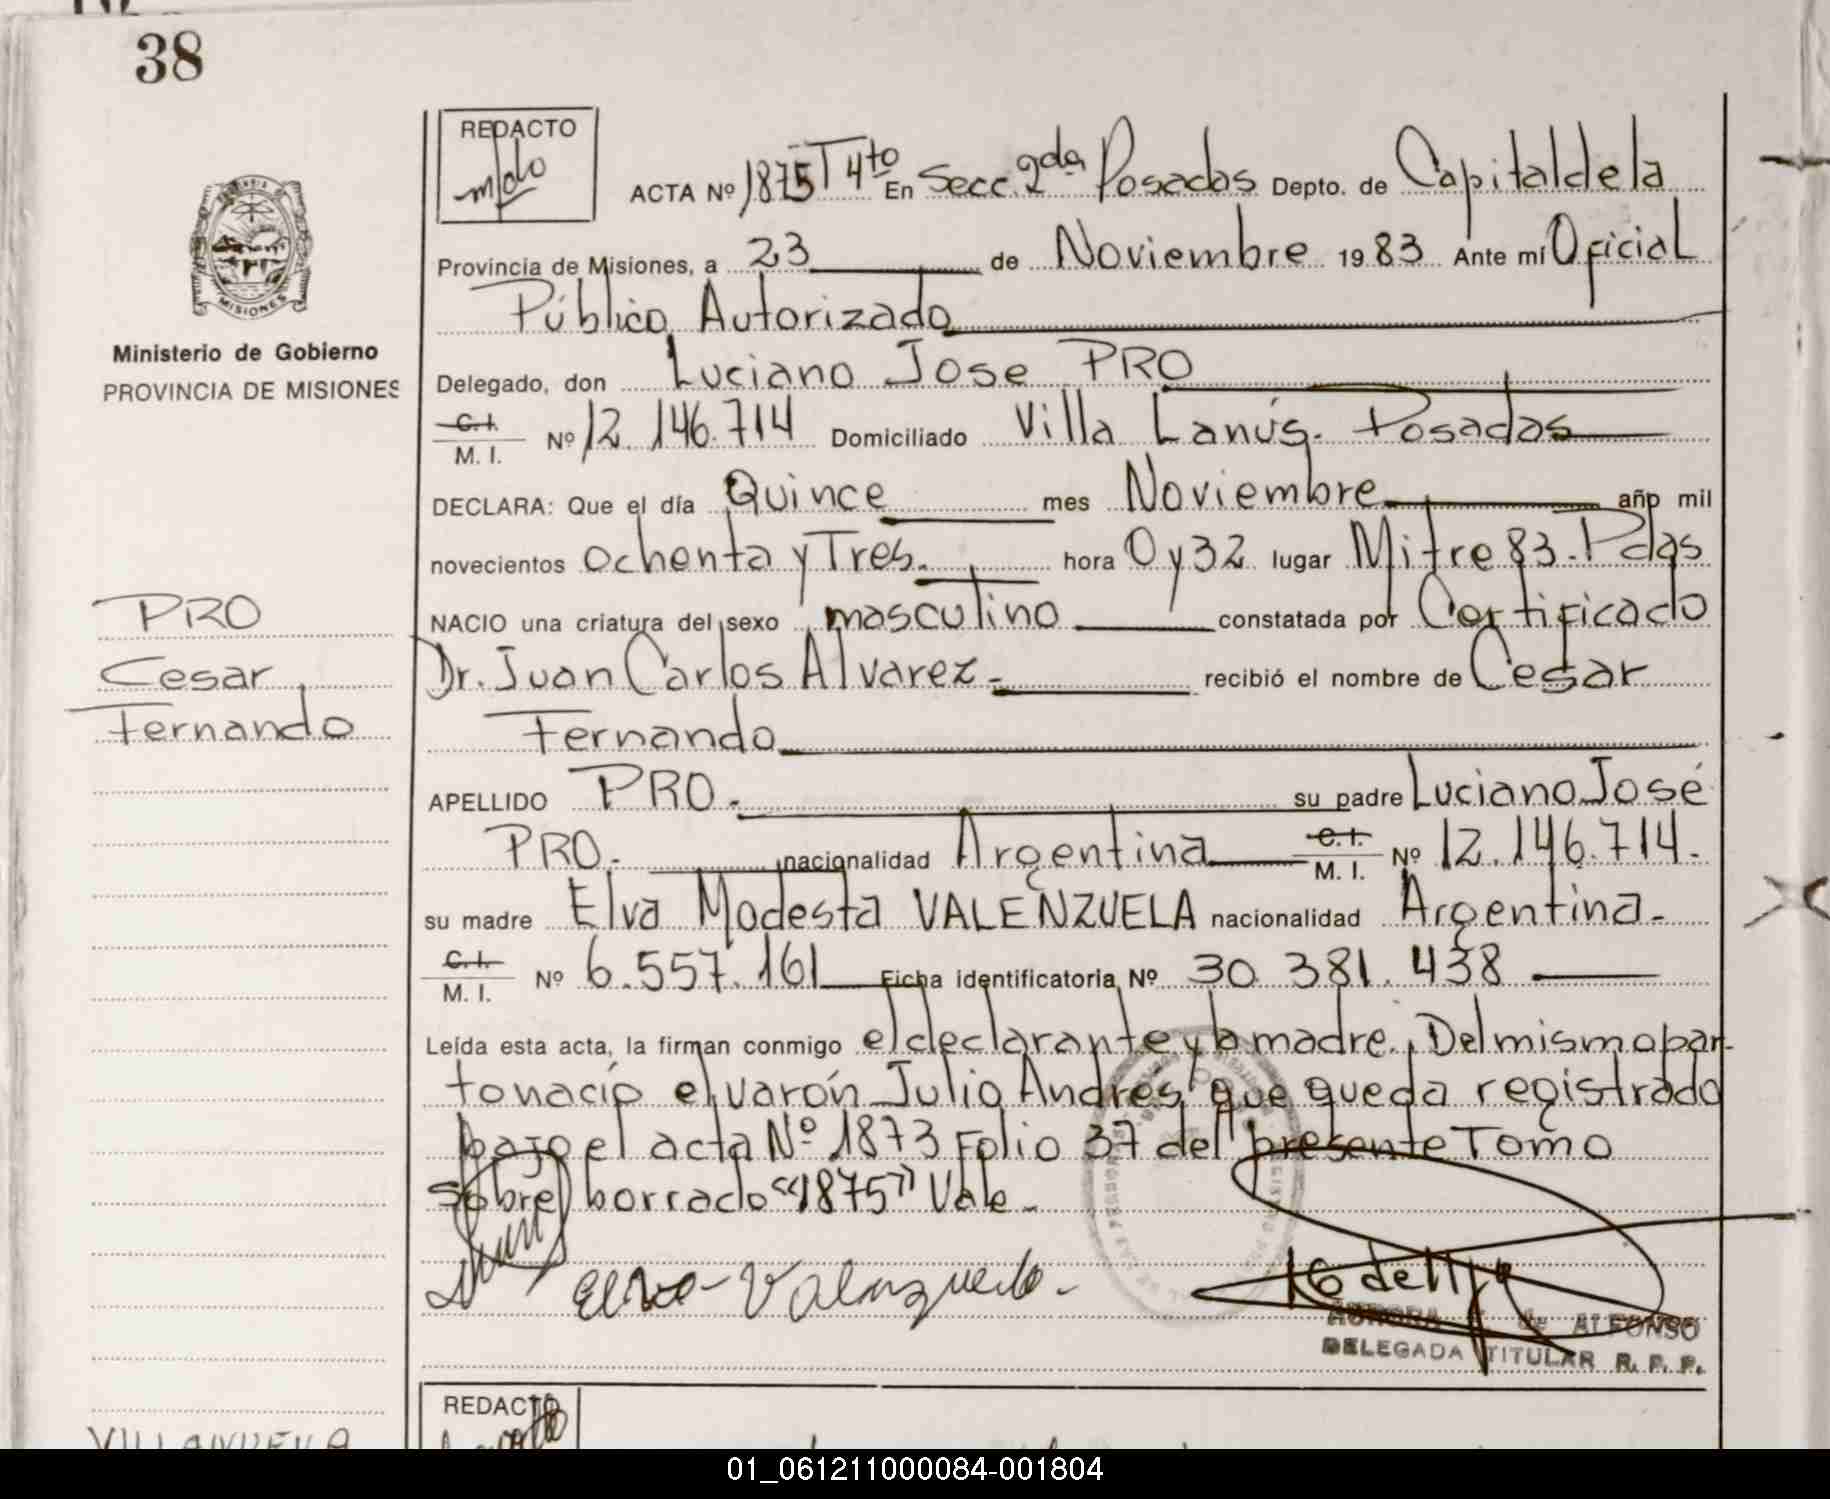 38
REDACTO
ACTA Nº 1875 T 4to En Secc. 2da Posadas Depto. de Capital de la
Provincia de Misiones, a 23 de Noviembre 1983 Ante mi Oficial
Público Autorizado
MISIONES
Ministerio de Gobierno
PROVINCIA DE MISIONES
Delegado, don Luciano Jose PRO
C.I. M. I. Nº 12.146.714 Domiciliado Villa Lanús. Posadas
DECLARA: Que el día Quince mes Noviembre año mil
novecientos ochenta y Tres. hora 0 y 32 lugar Mitre 83. Pdas
NACIO una criatura del sexo masculino constatada por Certificado
Dr. Juan Carlos Alvarez recibió el nombre de Cesar
Fernando
PRO
Cesar
Fernando
APELLIDO PRO. su padre Luciano José
PRO. nacionalidad Argentina C.I. M. I. Nº 12.146.714.
su madre Elva Modesta VALENZUELA nacionalidad Argentina.
C.I. M. I. Nº 6.557.161 Ficha identificatoria Nº 30.381.438
Leída esta acta, la firman conmigo el declarante y la madre. Del mismo par-
to nació el varón Julio Andres que queda registrado
bajo el acta Nº 1873 Folio 37 del presente Tomo
Sobre borrado "1875" Vale.
Elva Valenzuela.
AURORA de ALFONSO
DELEGADA TITULAR R. P. P.
REDACTO
01_061211000084-001804